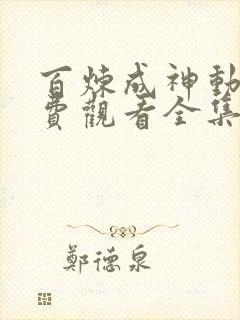 百煉成神動
費觀看全集
鄭德泉